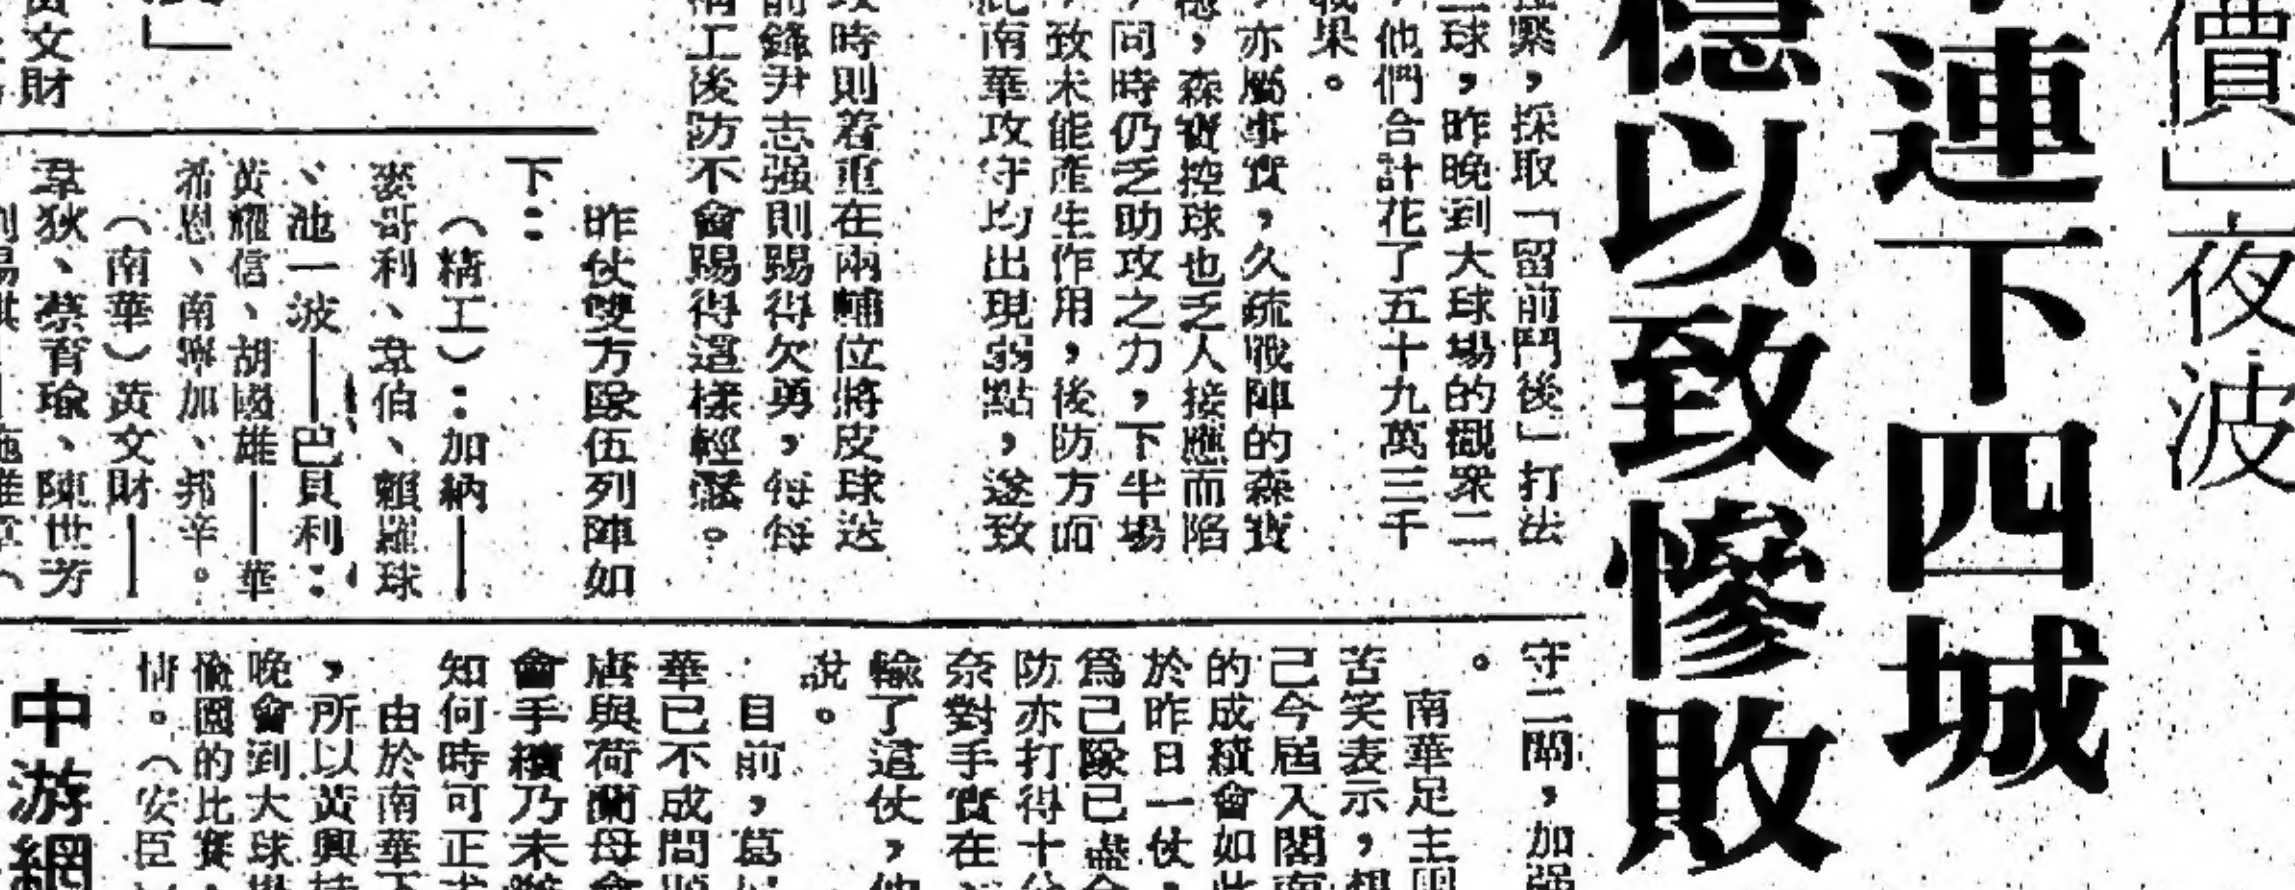 價」夜波
連下四城
穩以致慘敗
緊,採取「留前鬥後」打法
球,昨晚到大球場的觀眾二
,他們合計花了五十九萬三千
果。
,亦屬事實,久疏戰陣的森寶
,森寶控球也乏人接應而陷
,同時仍乏助攻之力,下半場
致未能產生作用,後防方面
南華攻守均出現弱點,遂致
時則着重在兩輔位將皮球送
前鋒尹志强則踢得欠勇,每每
工後防不會踢得這樣輕鬆。
昨仗雙方隊伍列陣如
下:
(精工):加納——
麥哥利、韋伯、賴羅球
、池一波——巴貝利:
黃耀信、胡國雄——華
希恩、南寧加、邦辛。
(南華)黃文財——
韋狄、蔡育瑜、陳世芳
文財
守二關,加强
。
南華足主
苦笑表示,想
己今屆入閣南
的成績會如此
於昨日一仗,
爲己隊已盡全
防亦打得十分
奈對手實在
輸了這仗,他
說。
目前,葛
華已不成問題
唐與荷蘭母會
會手續乃未辦
知何時可正式
由於南華下
,所以黃興
晚會到大球場
愉園的比賽,
情。(安臣)
中游網